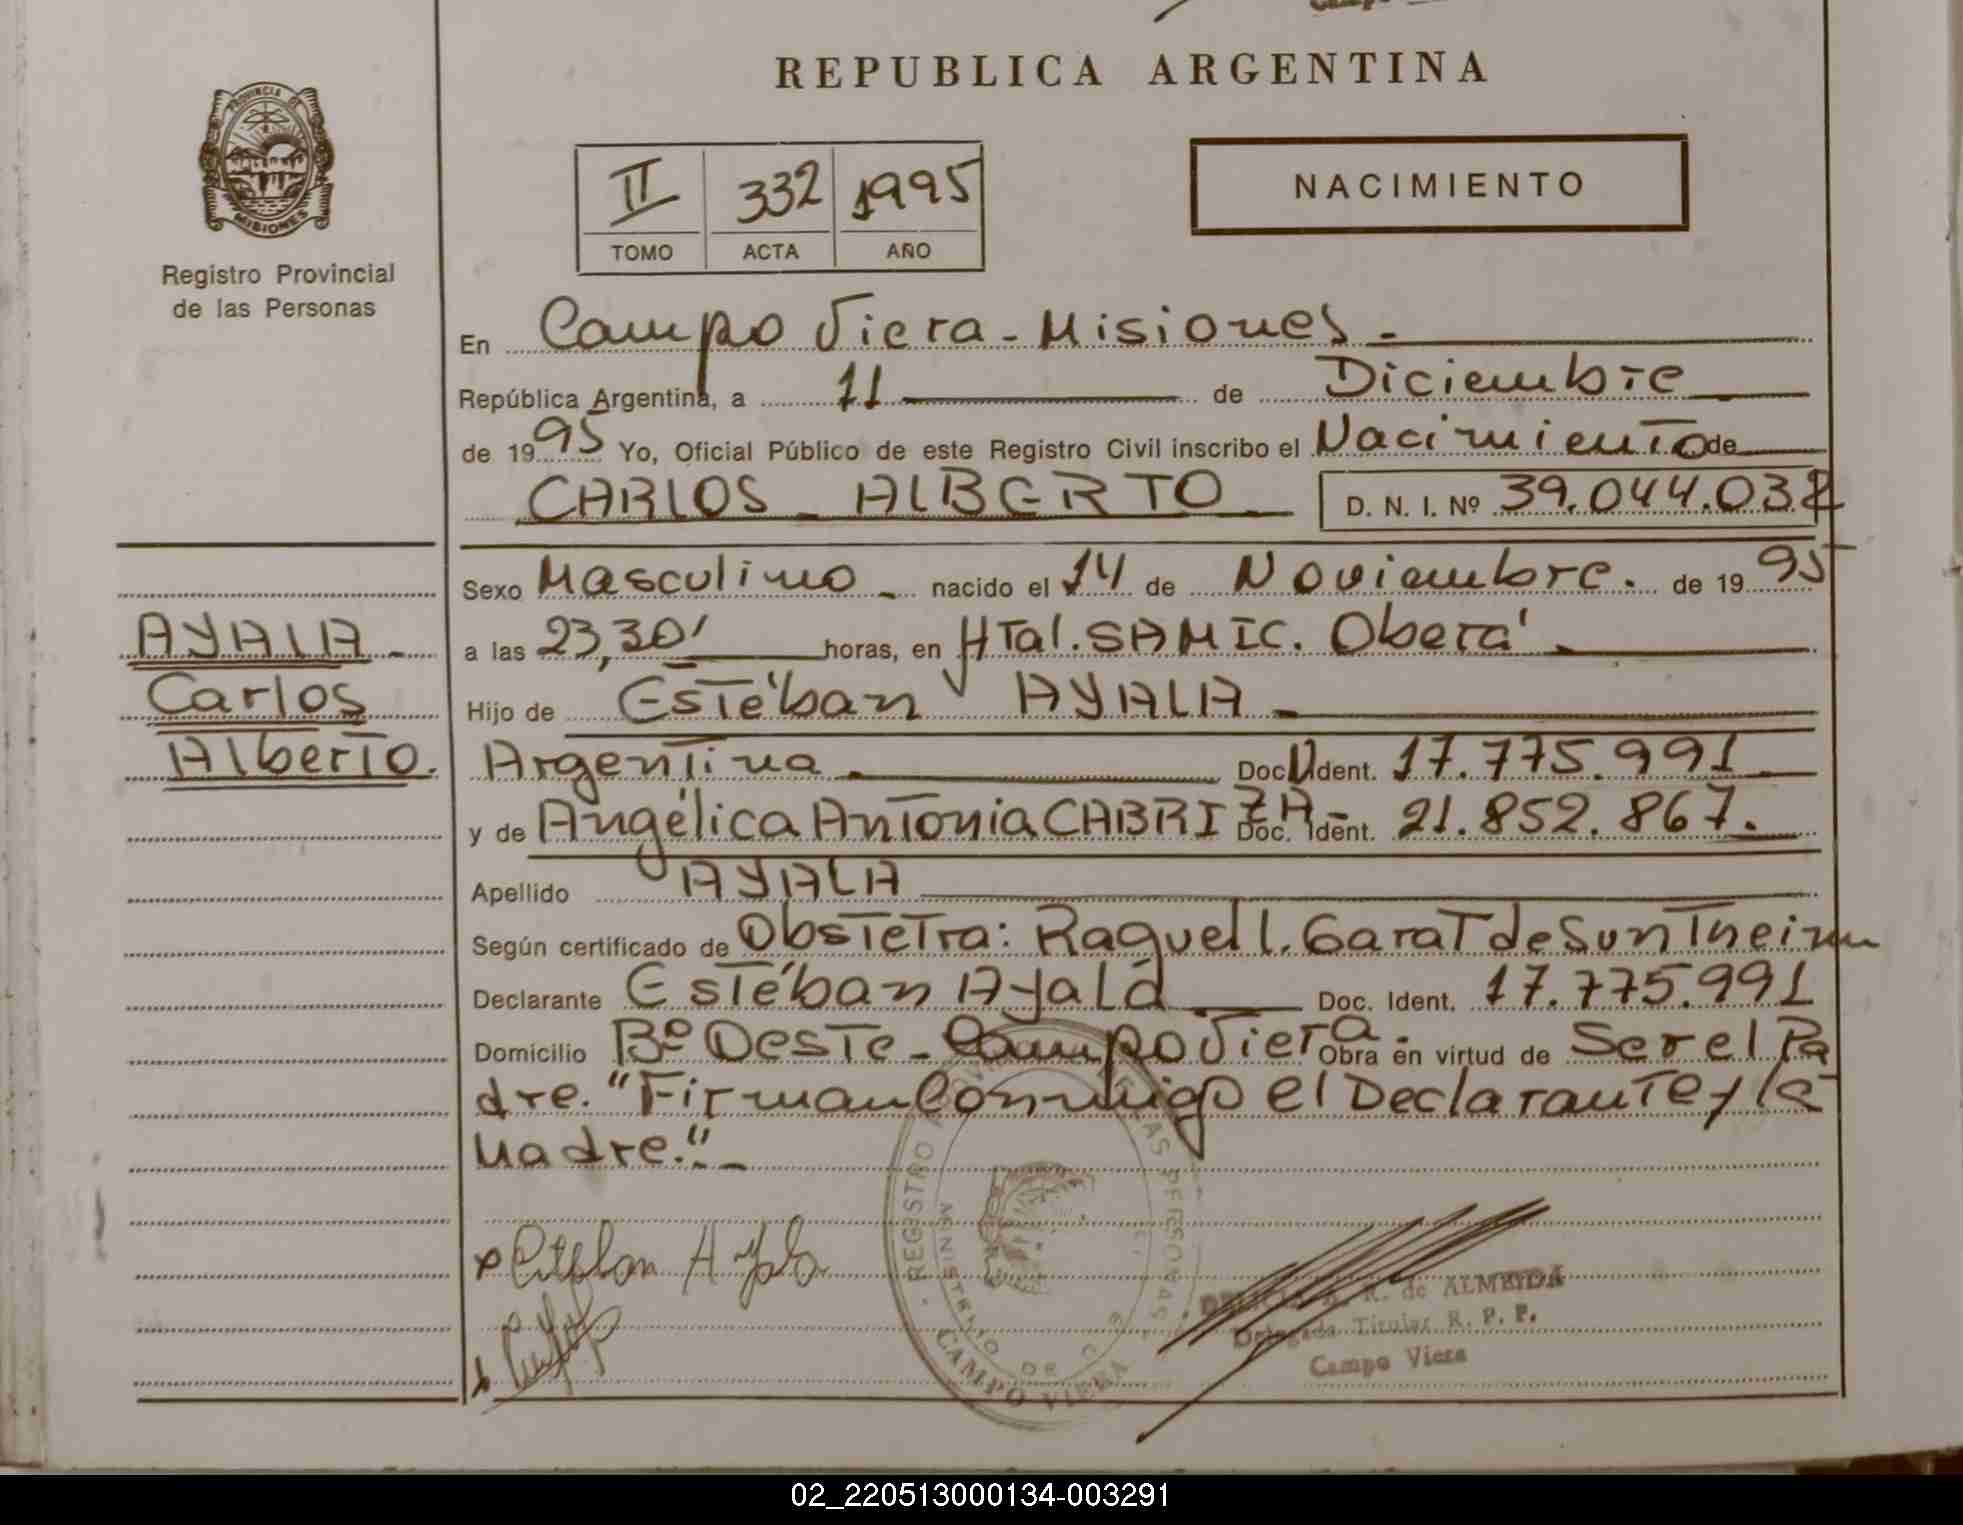 REPUBLICA ARGENTINA
PROVINCIA DE
MISIONES
Registro Provincial
de las Personas
II 332 1995
TOMO ACTA AÑO
NACIMIENTO
En Campo Viera - Misiones -
República Argentina, a 11 de Diciembre
de 1995 Yo, Oficial Público de este Registro Civil inscribo el Nacimiento de
CARLOS - ALBERTO - D. N. I. Nº 39.044.032
Sexo Masculino - nacido el 14 de Noviembre. de 1995
AYALA -
Carlos
Alberto.
a las 23,30' horas, en HTal. SAMIC. Oberá
Hijo de Estéban AYALA -
Argentina Doc. Ident. 17.775.991
y de Angélica Antonia CABRIZA Doc. Ident. 21.852.867.
Apellido AYALA
Según certificado de Obstetra: Raquel l. Garat de Suntheim
Declarante Estéban Ayala Doc. Ident. 17.775.991
Domicilio Bº Oeste - Campo Viera. Obra en virtud de Ser el Pa
dre. "Firman Conmigo el Declarante y la
Madre." -
x Esteban Ayala
REGISTRO PERSONAS
MINISTERIO DE
CAMPO VIERA
A. R. de ALMEIDA
Delegada Titular R. P. P.
Campo Viera
02_220513000134-003291